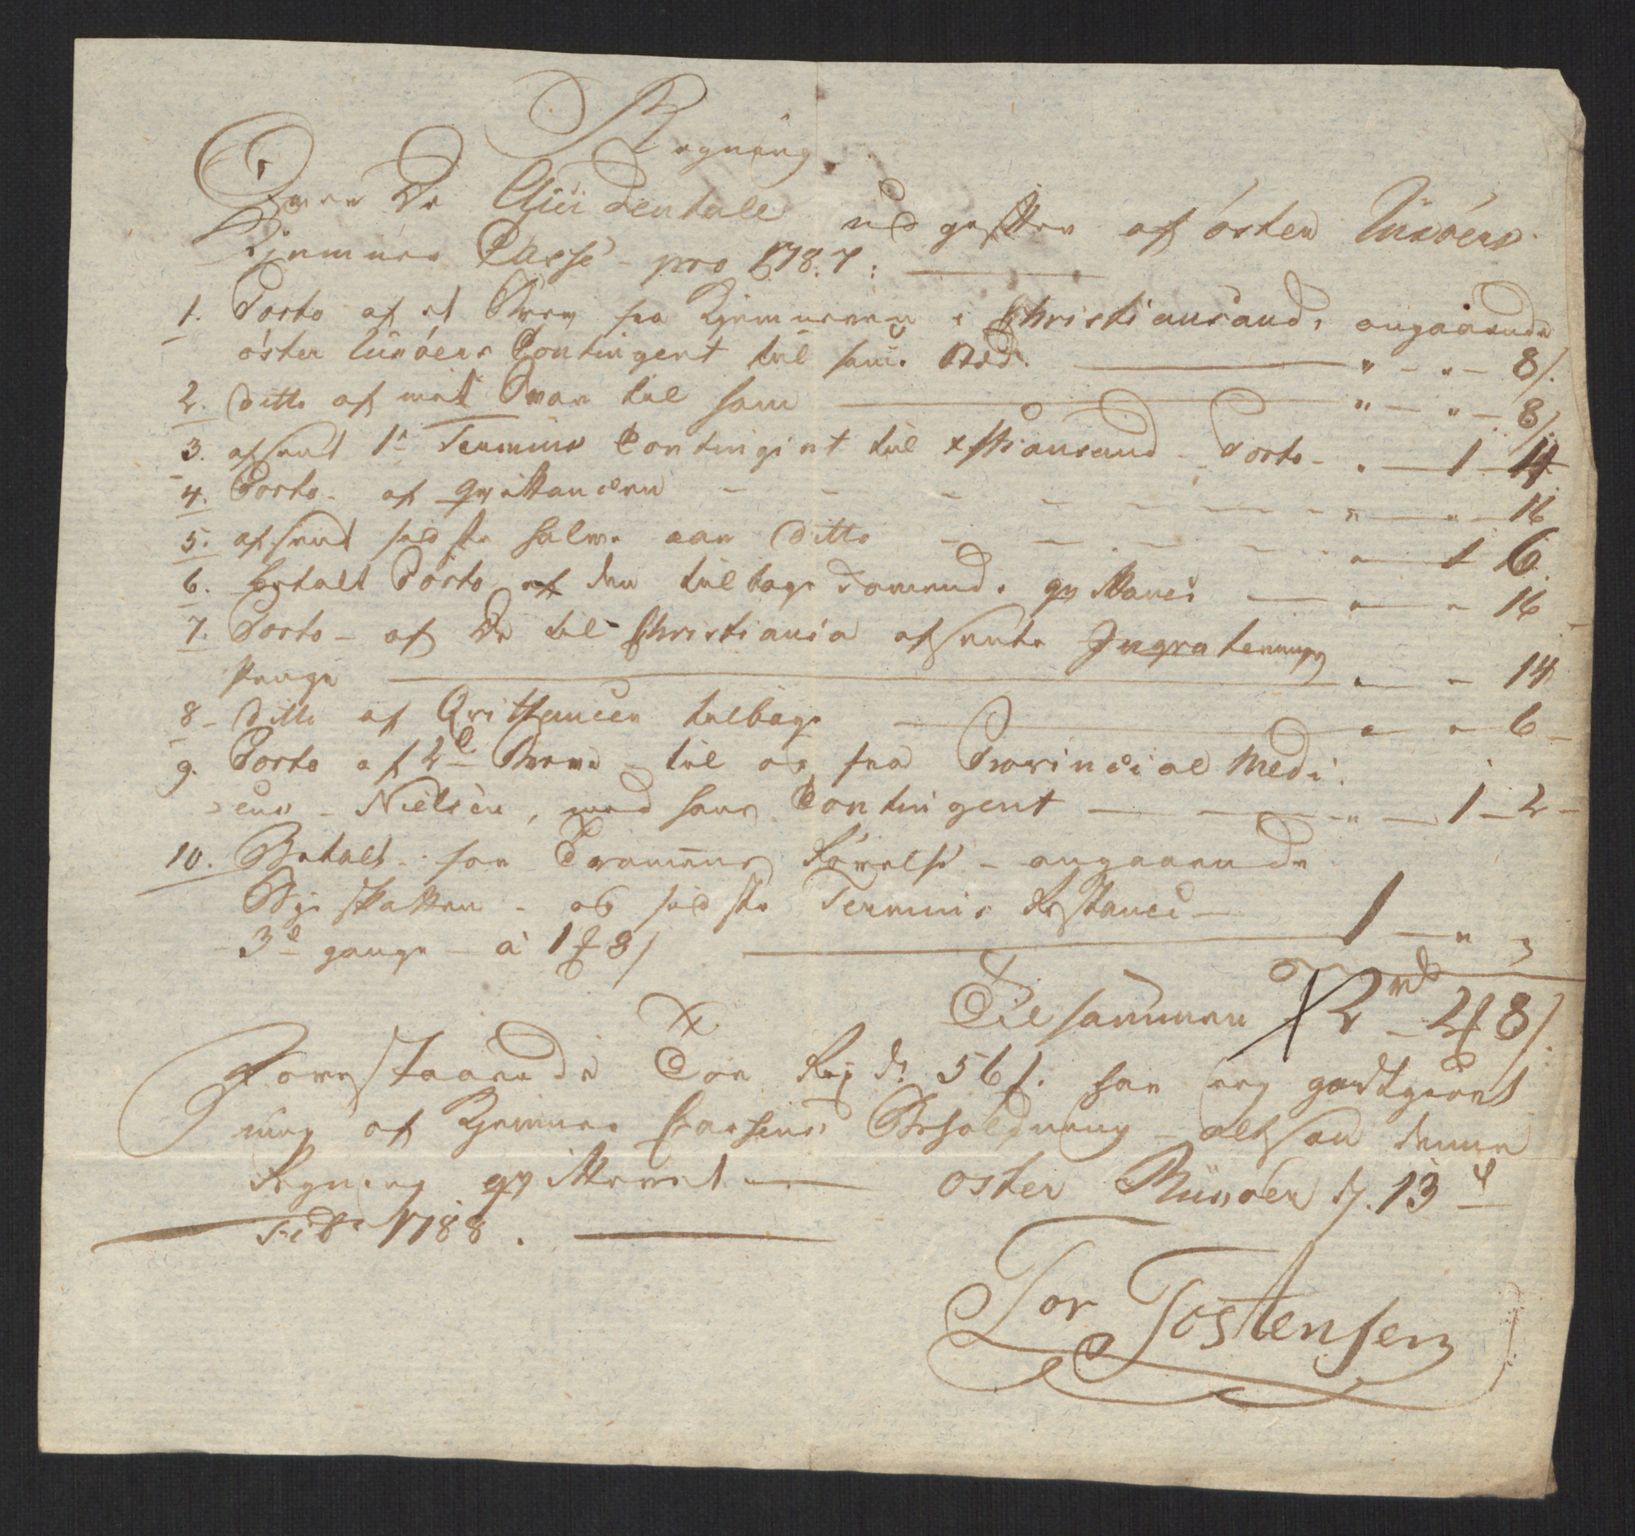 Regning
Over De Accidentale udgifter af öster Riisöers
Kjemner Casse pro 1787:
1. Porto af et Brev fra Kjemneren i Christiansand, angaaende
öster Riisöers Contingent til sam: Stæd. " - " - 8/.
2. ditto af mit Svar til sam " - " - 8/.
3. afsendt 1te Termins Contingent til Xstiansand - Porto - " - 1 - 4
4. Porto - af qvittancen - " - " - 16
5. afsendt sidste halve aar ditto - " - 1 6
6. betalt Porto af den tilbage komende qvittance " - " - 16
7. Porto - af De til Christiania afsendte Ingrotennings
Penge " - " - 14
8 - ditto af Qvittancen tilbage " - " 6 -
9. Porto af 2de Breve - til og fra Provincial Medi-
cus - Nielsen, med hans Contingent - " - 1 - 2 -
10. Betalt - for Trommens Rörelse - angaaende
Bye skatten - og sidste Termins Restance -
3de gange - à 1 8/ 1 - " 3
Tilsammen 2 rd - 4 8/.
Forestaaende Toe Rixdr. 56 s. har jeg godtgiort
mig af Kjemner Cassens Beholdning - altsaa denne
Regning qvitteret - öster Riisöer d. 13de
1788.
Tor Tostensen